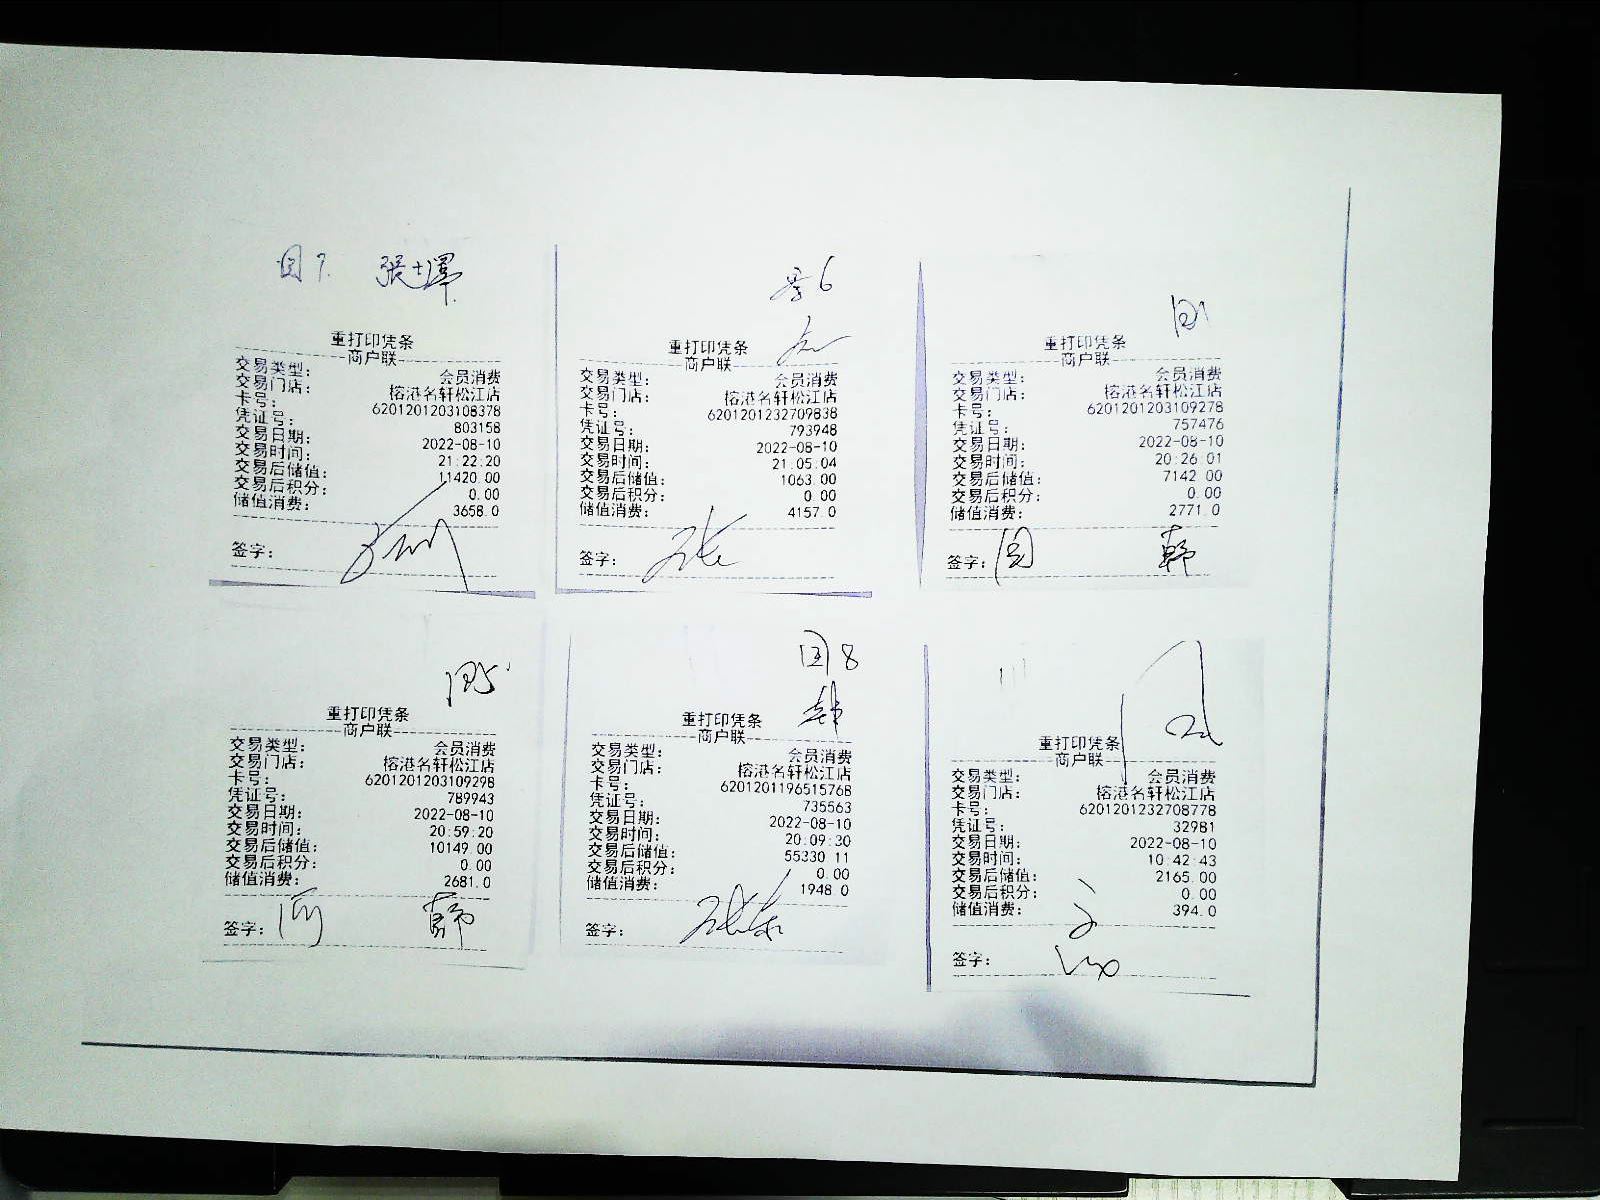 7. 張士澤
重打印凭条
商户联
交易类型: 会员消费
交易门店: 榕港名轩松江店
卡号: 6201201203108378
凭证号: 803158
交易日期: 2022-08-10
交易时间: 21:22:20
交易后储值: 11420.00
交易后积分: 0.00
储值消费: 3658.0
签字:
6
重打印凭条
商户联
交易类型: 会员消费
交易门店: 榕港名轩松江店
卡号: 6201201232709838
凭证号: 793948
交易日期: 2022-08-10
交易时间: 21:05:04
交易后储值: 1063.00
交易后积分: 0.00
储值消费: 4157.0
签字: 张
重打印凭条
商户联
交易类型: 会员消费
交易门店: 榕港名轩松江店
卡号: 6201201203109278
凭证号: 757476
交易日期: 2022-08-10
交易时间: 20:26:01
交易后储值: 7142.00
交易后积分: 0.00
储值消费: 2771.0
签字:
重打印凭条
商户联
交易类型: 会员消费
交易门店: 榕港名轩松江店
卡号: 6201201203109298
凭证号: 789943
交易日期: 2022-08-10
交易时间: 20:59:20
交易后储值: 10149.00
交易后积分: 0.00
储值消费: 2681.0
签字:
8
重打印凭条
商户联
交易类型: 会员消费
交易门店: 榕港名轩松江店
卡号: 6201201196515768
凭证号: 735563
交易日期: 2022-08-10
交易时间: 20:09:30
交易后储值: 55330.11
交易后积分: 0.00
储值消费: 1948.0
签字:
重打印凭条
商户联
交易类型: 会员消费
交易门店: 榕港名轩松江店
卡号: 6201201232708778
凭证号: 32981
交易日期: 2022-08-10
交易时间: 10:42:43
交易后储值: 2165.00
交易后积分: 0.00
储值消费: 394.0
签字: